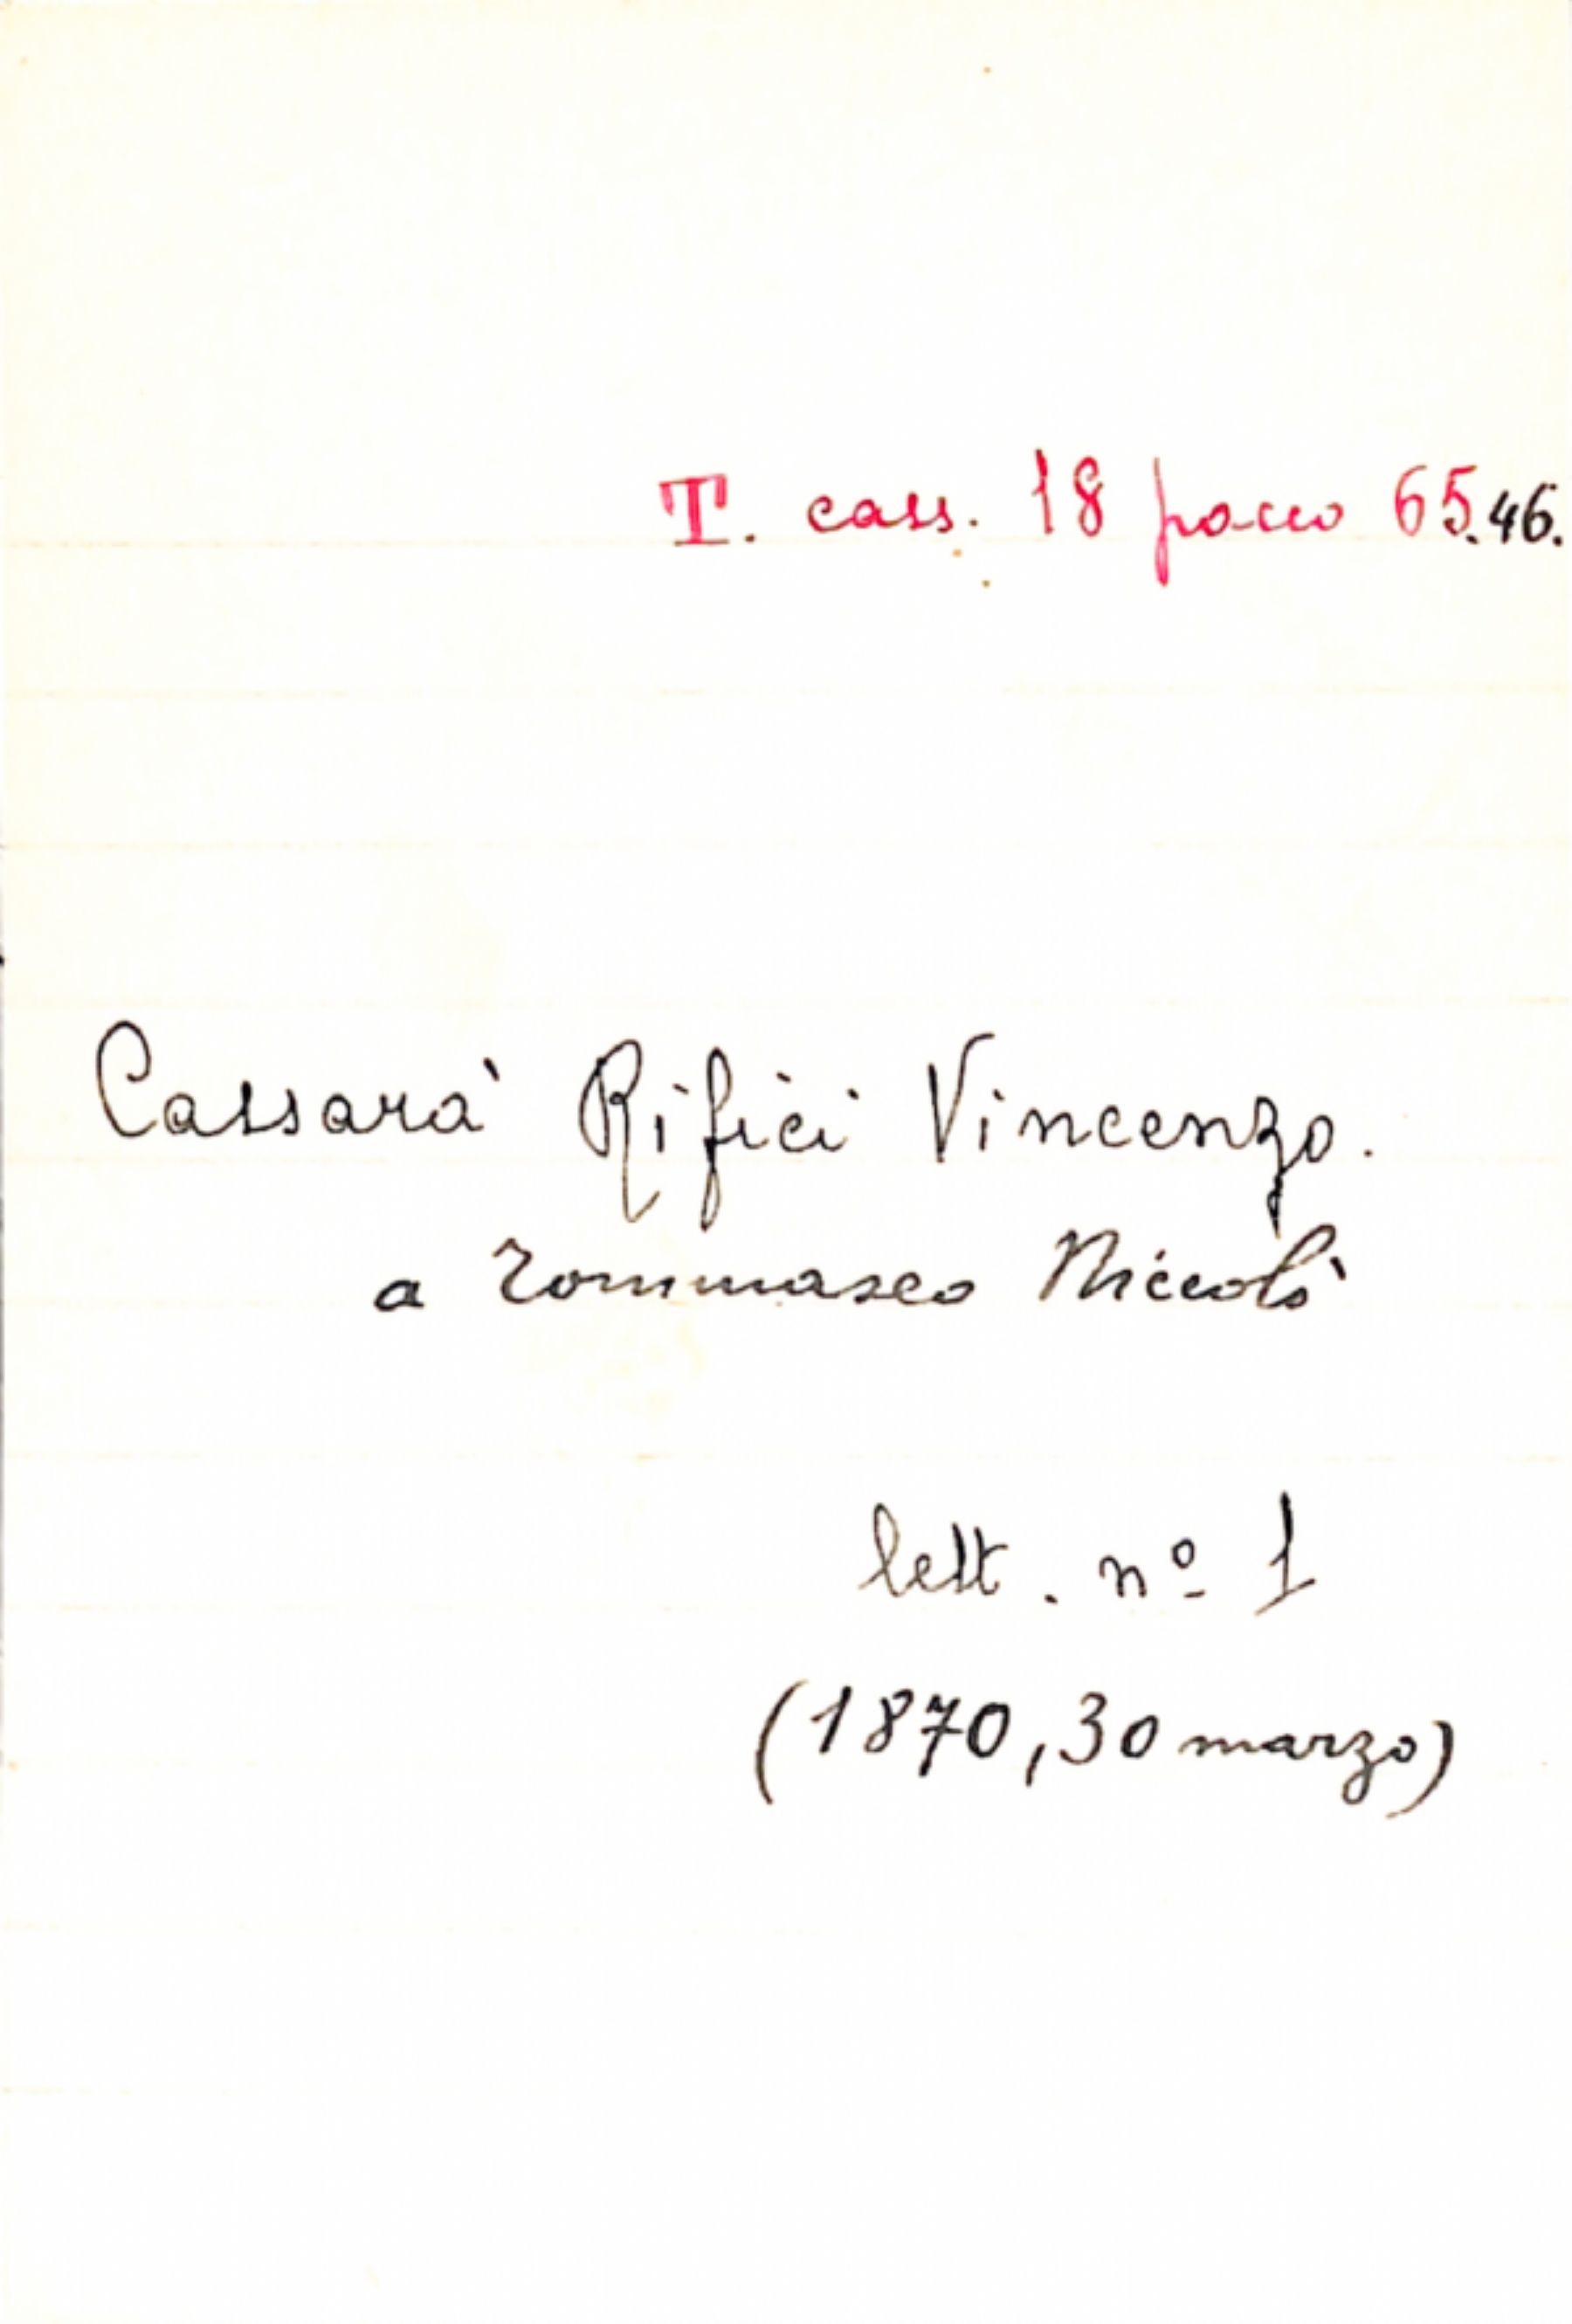 T. cass. 18 pacco 65.46.
Cassarà Rifici Vincenzo.
a Tommaseo Niccolò
lett. nº 1
(1870, 30 marzo)